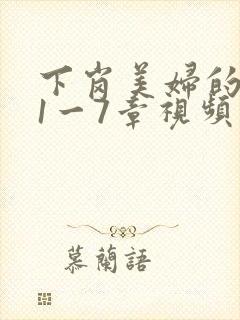 下岗美婦的
1一7章視頻
慕蘭語